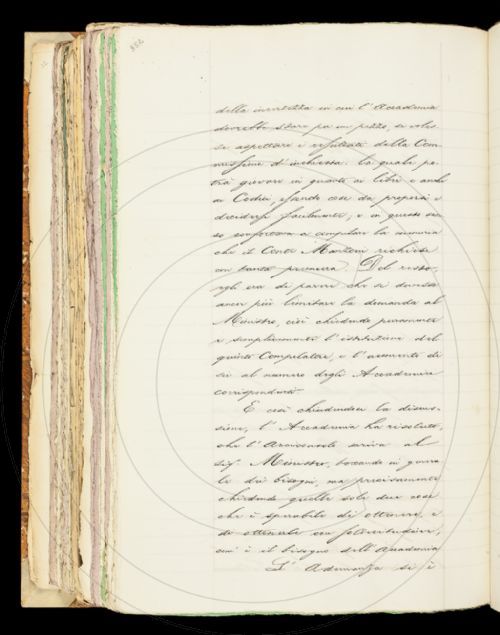 della incertezza in cui l'Accademia
dovrebbe stare per un pezzo, se voles-
se aspettare i resultati della Com-
missione d'inchiesta: la quale po-
trà giovare in quanto ai libri e anche
ai Codici, essendo cose da proporsi e
decidersi facilmente; e in questo sen-
so confortava a compilare la memoria
che il Conte Manzoni richiese
con tanta premura. Del resto,
egli era di parere che si dovesse
ancor più limitare la domanda al
Ministro, cioè chiedendo puramente
e semplicemente l'istituzione del
quinto Compilatore, e l'aumento di
sei al numero degli Accademici
corrispondenti.
E così chiudendosi la discus-
sione, l'Accademia ha risoluto,
che l'Arciconsolo scriva al
Sig.r Ministro, toccando in genera-
le dei bisogni, ma precisamente
chiedendo quelle sole due cose
che è sperabile di ottenere, e
di ottenerle con sollecitudine,
com'è il bisogno dell'Accademia
L'Adunanza si è